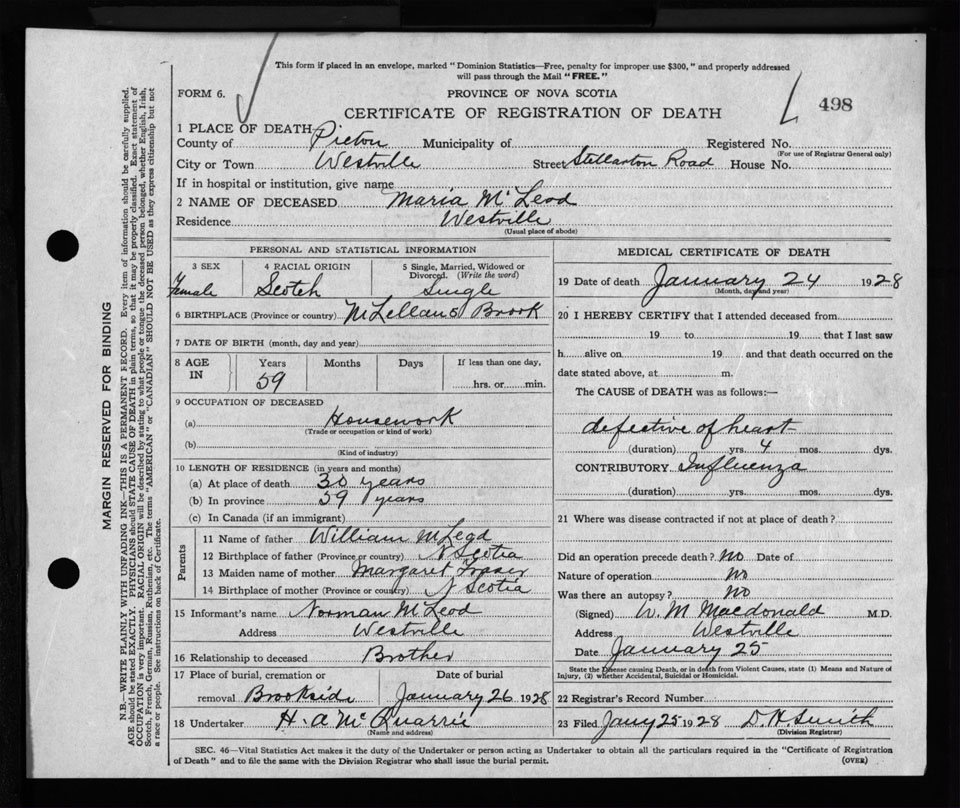 This form if placed in an envelope, marked "Dominion Statistics—Free, penalty for improper use $300," and properly addressed
will pass through the Mail "FREE."
FORM 6.
PROVINCE OF NOVA SCOTIA
498
CERTIFICATE OF REGISTRATION OF DEATH
1 PLACE OF DEATH
County of Pictou Municipality of Registered No.
(For use of Registrar General only)
City or Town Westville Street Stellarton Road House No.
If in hospital or institution, give name
2 NAME OF DECEASED Maria McLeod
Residence Westville
(Usual place of abode)
PERSONAL AND STATISTICAL INFORMATION
3 SEX Female
4 RACIAL ORIGIN Scotch
5 Single, Married, Widowed or Divorced. (Write the word) Single
6 BIRTHPLACE (Province or country) McLellans Brook
7 DATE OF BIRTH (month, day and year)
8 AGE IN Years 59 Months Days If less than one day, hrs. or min.
9 OCCUPATION OF DECEASED
(a) Housework
(Trade or occupation or kind of work)
(b)
(Kind of industry)
10 LENGTH OF RESIDENCE (in years and months)
(a) At place of death 30 years
(b) In province 59 years
(c) In Canada (if an immigrant)
Parents
11 Name of father William McLeod
12 Birthplace of father (Province or country) N Scotia
13 Maiden name of mother Margaret Fraser
14 Birthplace of mother (Province or country) N Scotia
15 Informant's name Norman McLeod
Address Westville
16 Relationship to deceased Brother
17 Place of burial, cremation or removal Brookside Date of burial January 26 1928
18 Undertaker H. A McQuarrie
(Name and address)
MEDICAL CERTIFICATE OF DEATH
19 Date of death January 24 1928
(Month, day and year)
20 I HEREBY CERTIFY that I attended deceased from
19 to 19 that I last saw
h alive on 19 and that death occurred on the
date stated above, at m.
The CAUSE of DEATH was as follows:—
defective of heart
(duration) yrs. 4 mos. dys.
CONTRIBUTORY Influenza
(duration) yrs. mos. dys.
21 Where was disease contracted if not at place of death?
Did an operation precede death? No Date of
Nature of operation No
Was there an autopsy? No
(Signed) W. M Macdonald M.D.
Address Westville
Date January 25
State the Disease causing Death, or in death from Violent Causes, state (1) Means and Nature of
Injury, (2) whether Accidental, Suicidal or Homicidal.
22 Registrar's Record Number
23 Filed Jany 25 1928 D. H. Smith
(Division Registrar)
SEC. 46—Vital Statistics Act makes it the duty of the Undertaker or person acting as Undertaker to obtain all the particulars required in the "Certificate of Registration
of Death" and to file the same with the Division Registrar who shall issue the burial permit.
(OVER)
MARGIN RESERVED FOR BINDING
N.B.—WRITE PLAINLY WITH UNFADING INK—THIS IS A PERMANENT RECORD. Every item of information should be carefully supplied.
AGE should be stated EXACTLY. PHYSICIANS should STATE CAUSE OF DEATH in plain terms, so that it may be properly classified. Exact statement of
OCCUPATION is very important. RACIAL ORIGIN will be described by stating to what people or tongue the deceased person belonged, whether English, Irish,
Scotch, French, German, Russian, Ruthenian, etc. The terms "AMERICAN" or "CANADIAN" SHOULD NOT BE USED as they express citizenship but not
a race or people. See instructions on back of Certificate.